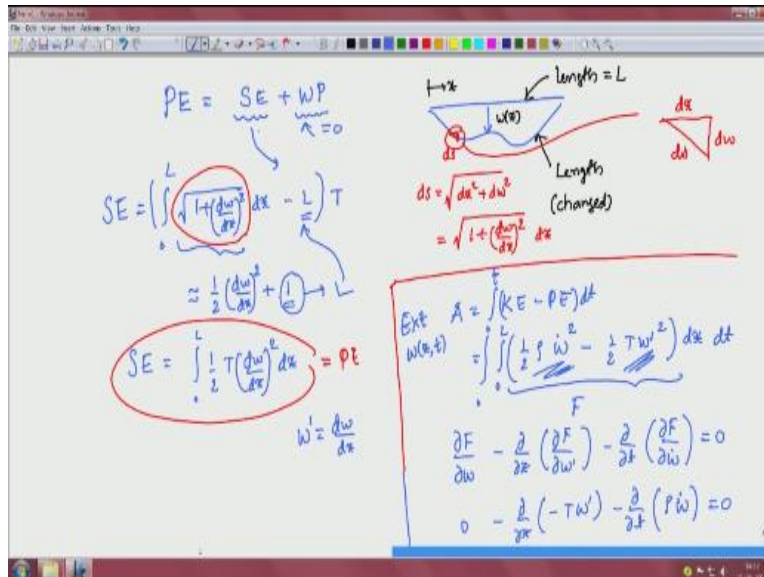 File Edit View Insert Actions Tools Help
PE = SE + WP
= 0
SE = ( ∫₀ᴸ √(1+(dw/dx)²) dx - L ) T
≈ 1/2 (dw/dx)² + 1 → L
SE = ∫₀ᴸ 1/2 T (dw/dx)² dx = PE
w' = dw/dx
↦x
length = L
w(x)
ds
Length
(changed)
dx
dw
ds
ds = √(dx² + dw²)
= √(1+(dw/dx)²) dx
Ext A = ∫₀ᵗ (KE - PE) dt
w(x,t)
= ∫₀ᵗ ∫₀ᴸ (1/2 ρ ẇ² - 1/2 T w'²) dx dt
F
∂F/∂w - ∂/∂x (∂F/∂w') - ∂/∂t (∂F/∂ẇ) = 0
0 - ∂/∂x (-Tw') - ∂/∂t (ρẇ) = 0